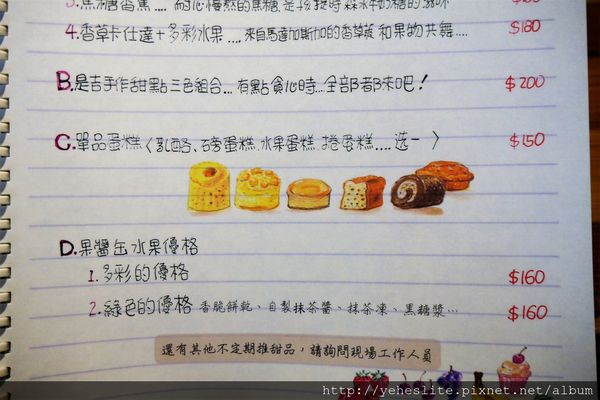 3.焦糖香蕉....
4.香草卡仕達+多彩水果....來自馬達加斯加的香草莢和果物共舞.... $180
B.是吉手作甜點三色組合...有點貪心時...全部都來吧! $200
C.單品蛋糕〈乳酪、磅蛋糕、水果蛋糕、捲蛋糕....选一〉 $150
D.果醬缶水果優格
1.多彩的優格 $160
2.綠色的優格 香脆餅乾、自製抹茶醬、抹茶凍、黑糖漿... $160
還有其他不定期推甜品，請詢問現場工作人員
http://yeheslite.pixnet.net/album